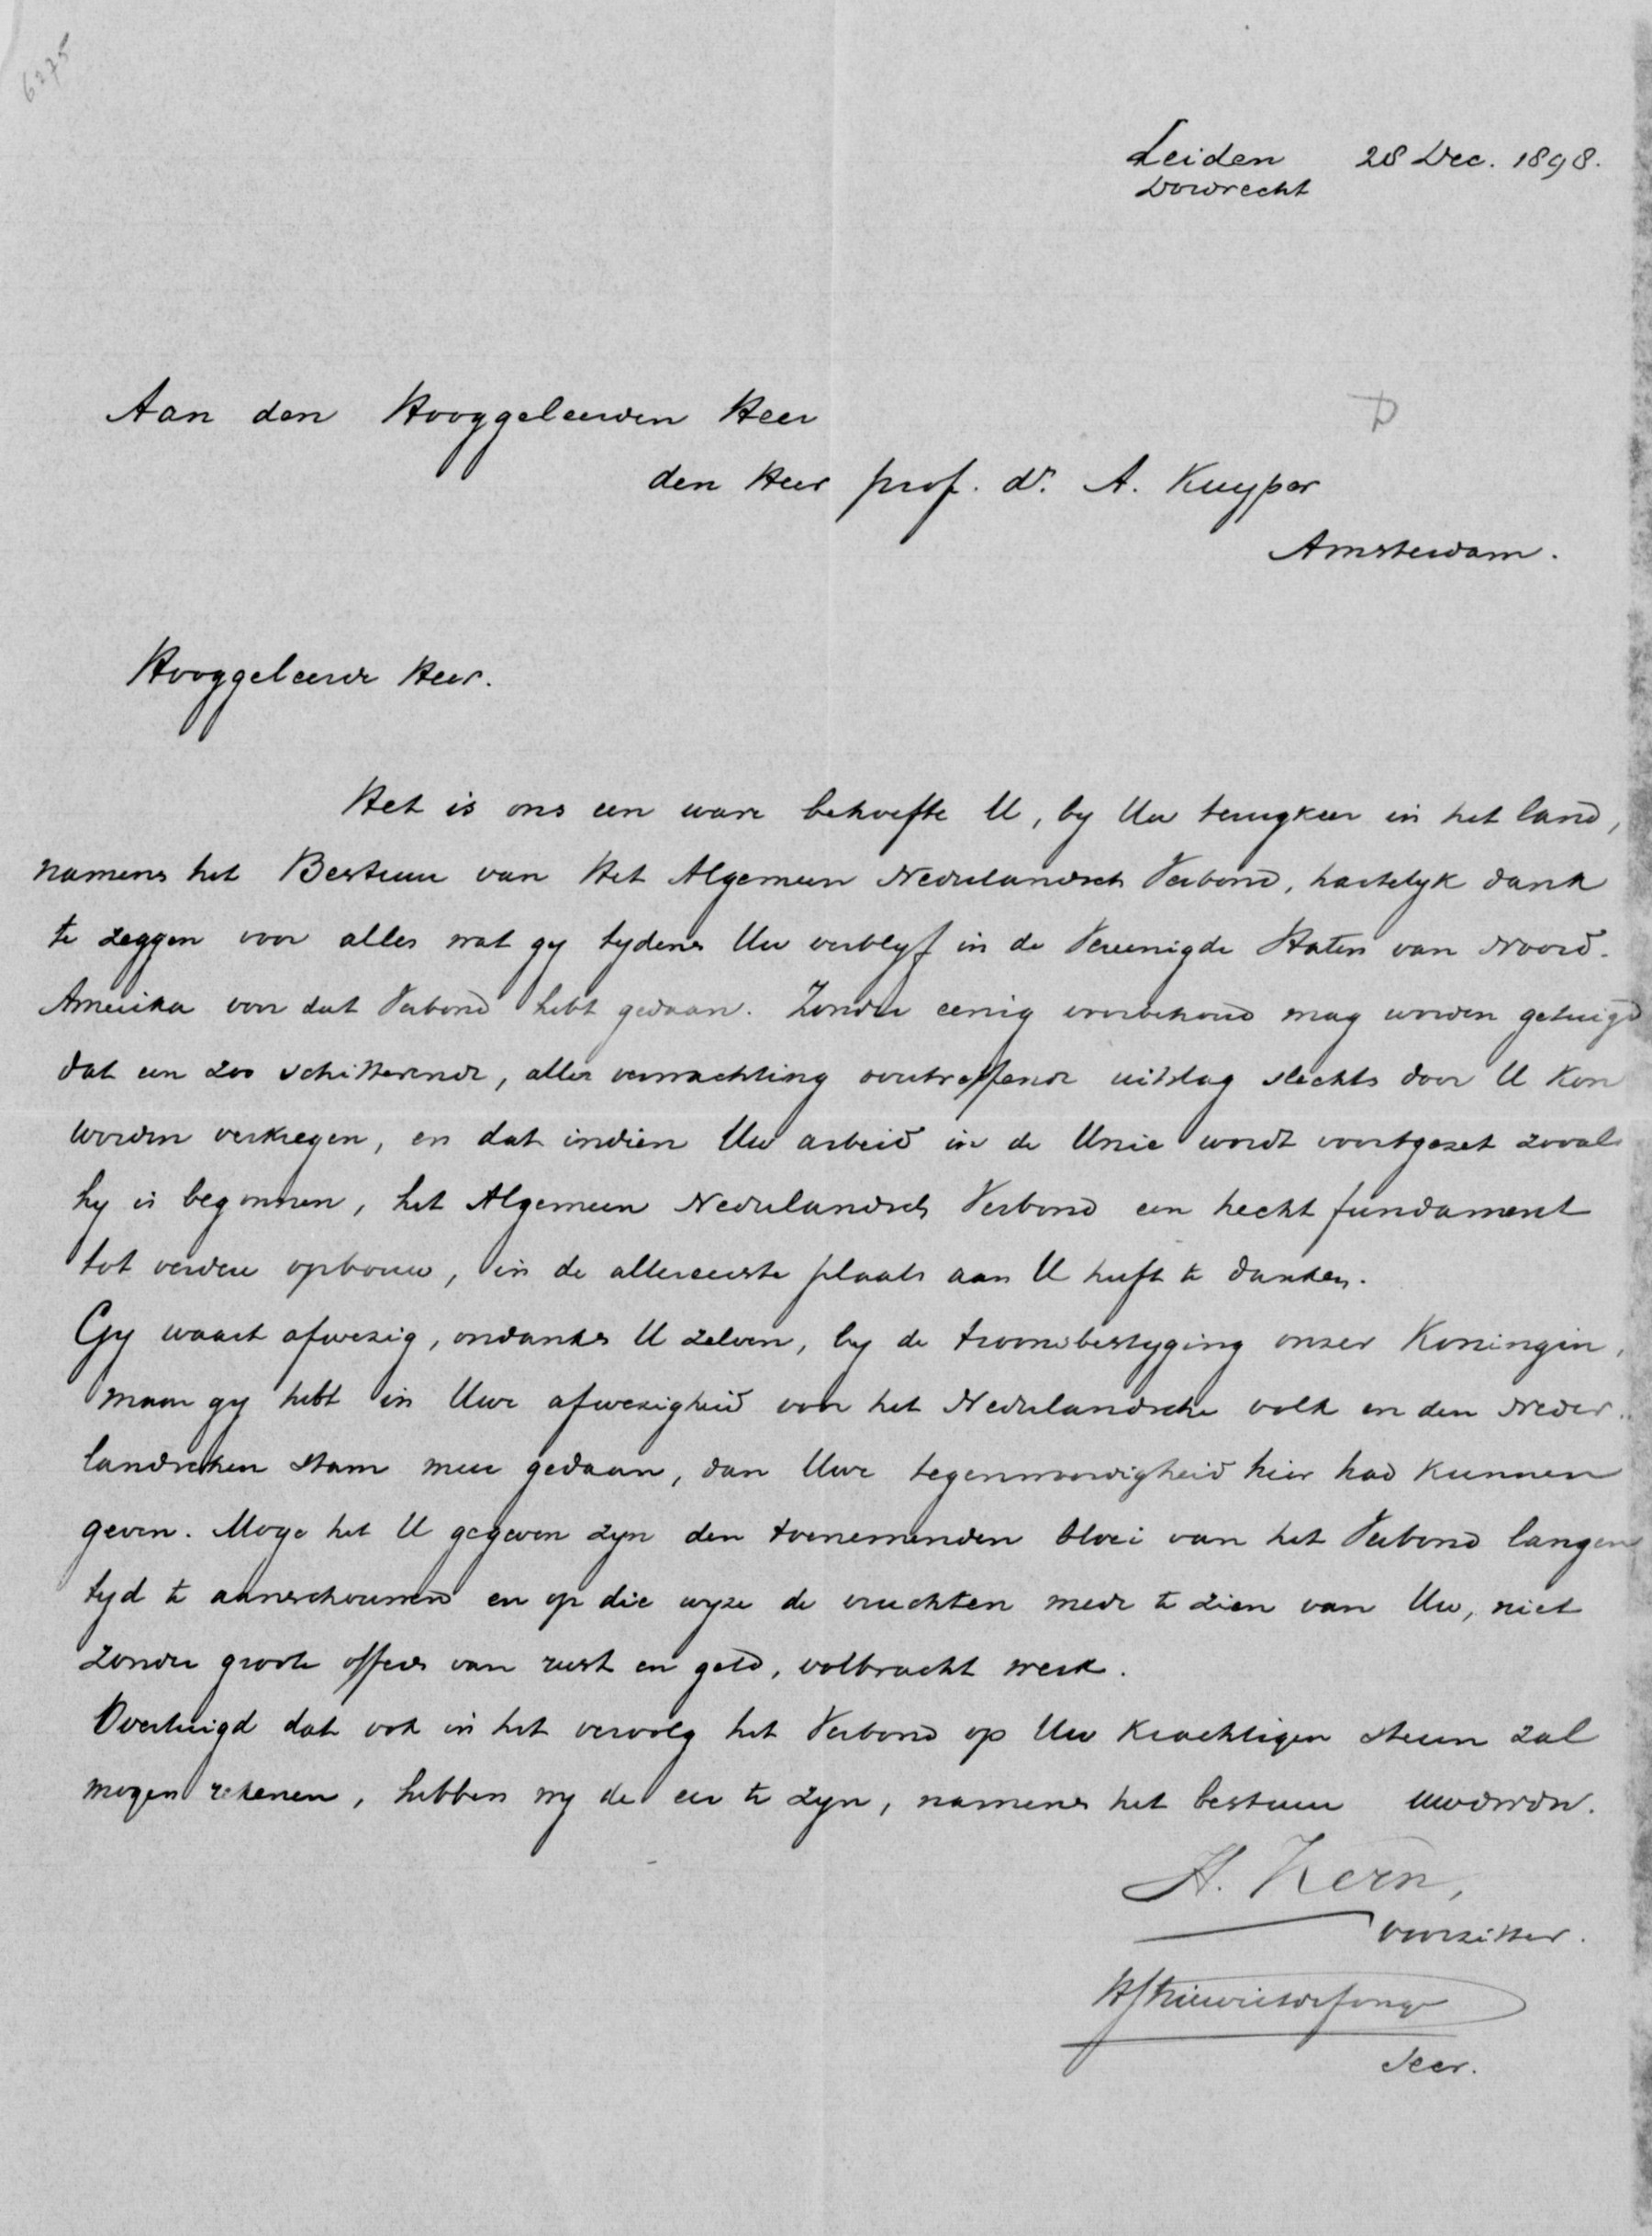 6275
Leiden 28 Dec. 1898.
Dordrecht
Aan den Hooggeleerden Heer
D
den Heer prof. dr. A. Kuyper
Amsterdam.
Hooggeleerde Heer.
Het is ons een ware behoefte U, by Uw terugkeer in het land,
namens het Bestuur van Het Algemeen Nederlandsch Verbond, hartelyk dank
te zeggen voor alles wat gy tydens Uw verblyf in de Vereenigde Staten van Noord-
Amerika voor dat Verbond hebt gedaan. Zonder eenig voorbehoud mag worden getuigd
dat een zoo schitterende, alle verwachting overtreffende uitslag slechts door U kon
worden verkregen, en dat indien Uw arbeid in de Unie wordt voortgezet zooals
hy is begonnen, het Algemeen Nederlandsch Verbond een hecht fundament
tot verdere opbouw, in de allereerste plaats aan U heeft te danken.
Gy waart afwezig, ondanks U zelven, by de troonsbestyging onzer Koningin,
maar gy hebt in Uwe afwezigheid voor het Nederlandsche volk en den Neder-
landschen stam meer gedaan, dan Uwe tegenwoordigheid hier had kunnen
geven. Moge het U gegeven zyn den toenemenden bloei van het Verbond langen
tyd te aanschouwen en op die wyze de vruchten mede te zien van Uw, niet
zonder groote offers van rust en geld, volbracht werk.
Overtuigd dat ook in het vervolg het Verbond op Uw krachtigen steun zal
mogen rekenen, hebben wy de eer te zyn, namens het bestuur uwdwdn.
H. Kern,
voorzitter.
HJKiewietdeJonge
Secr.